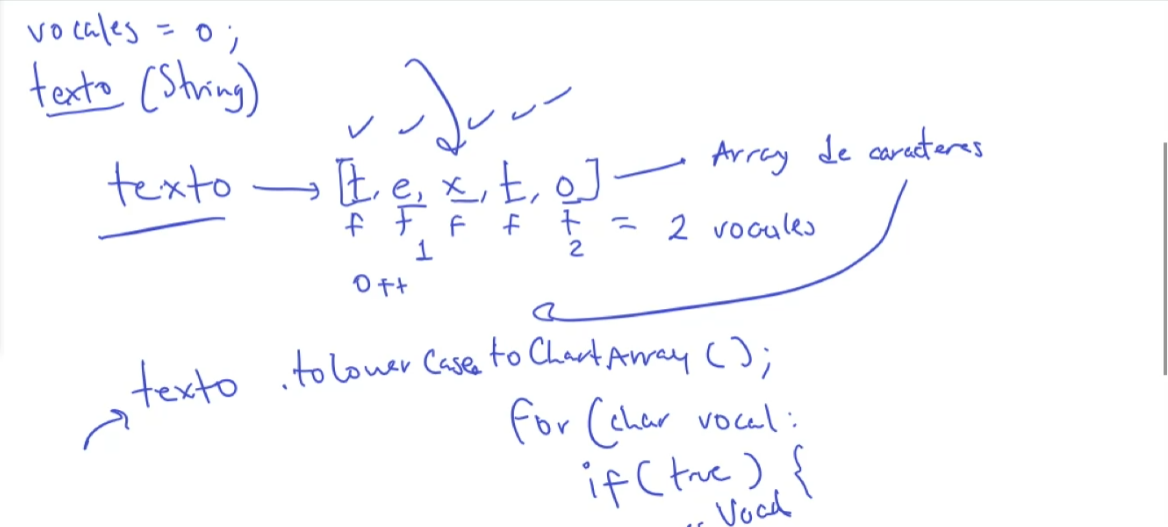 vocales = 0;
texto (String)
texto → [t, e, x, t, o] — Array de caracteres
f f f f t = 2 vocales
1 2
0 ++
texto .toLowerCase.toChartArray();
for (char vocal:
if (true) {
Vocal